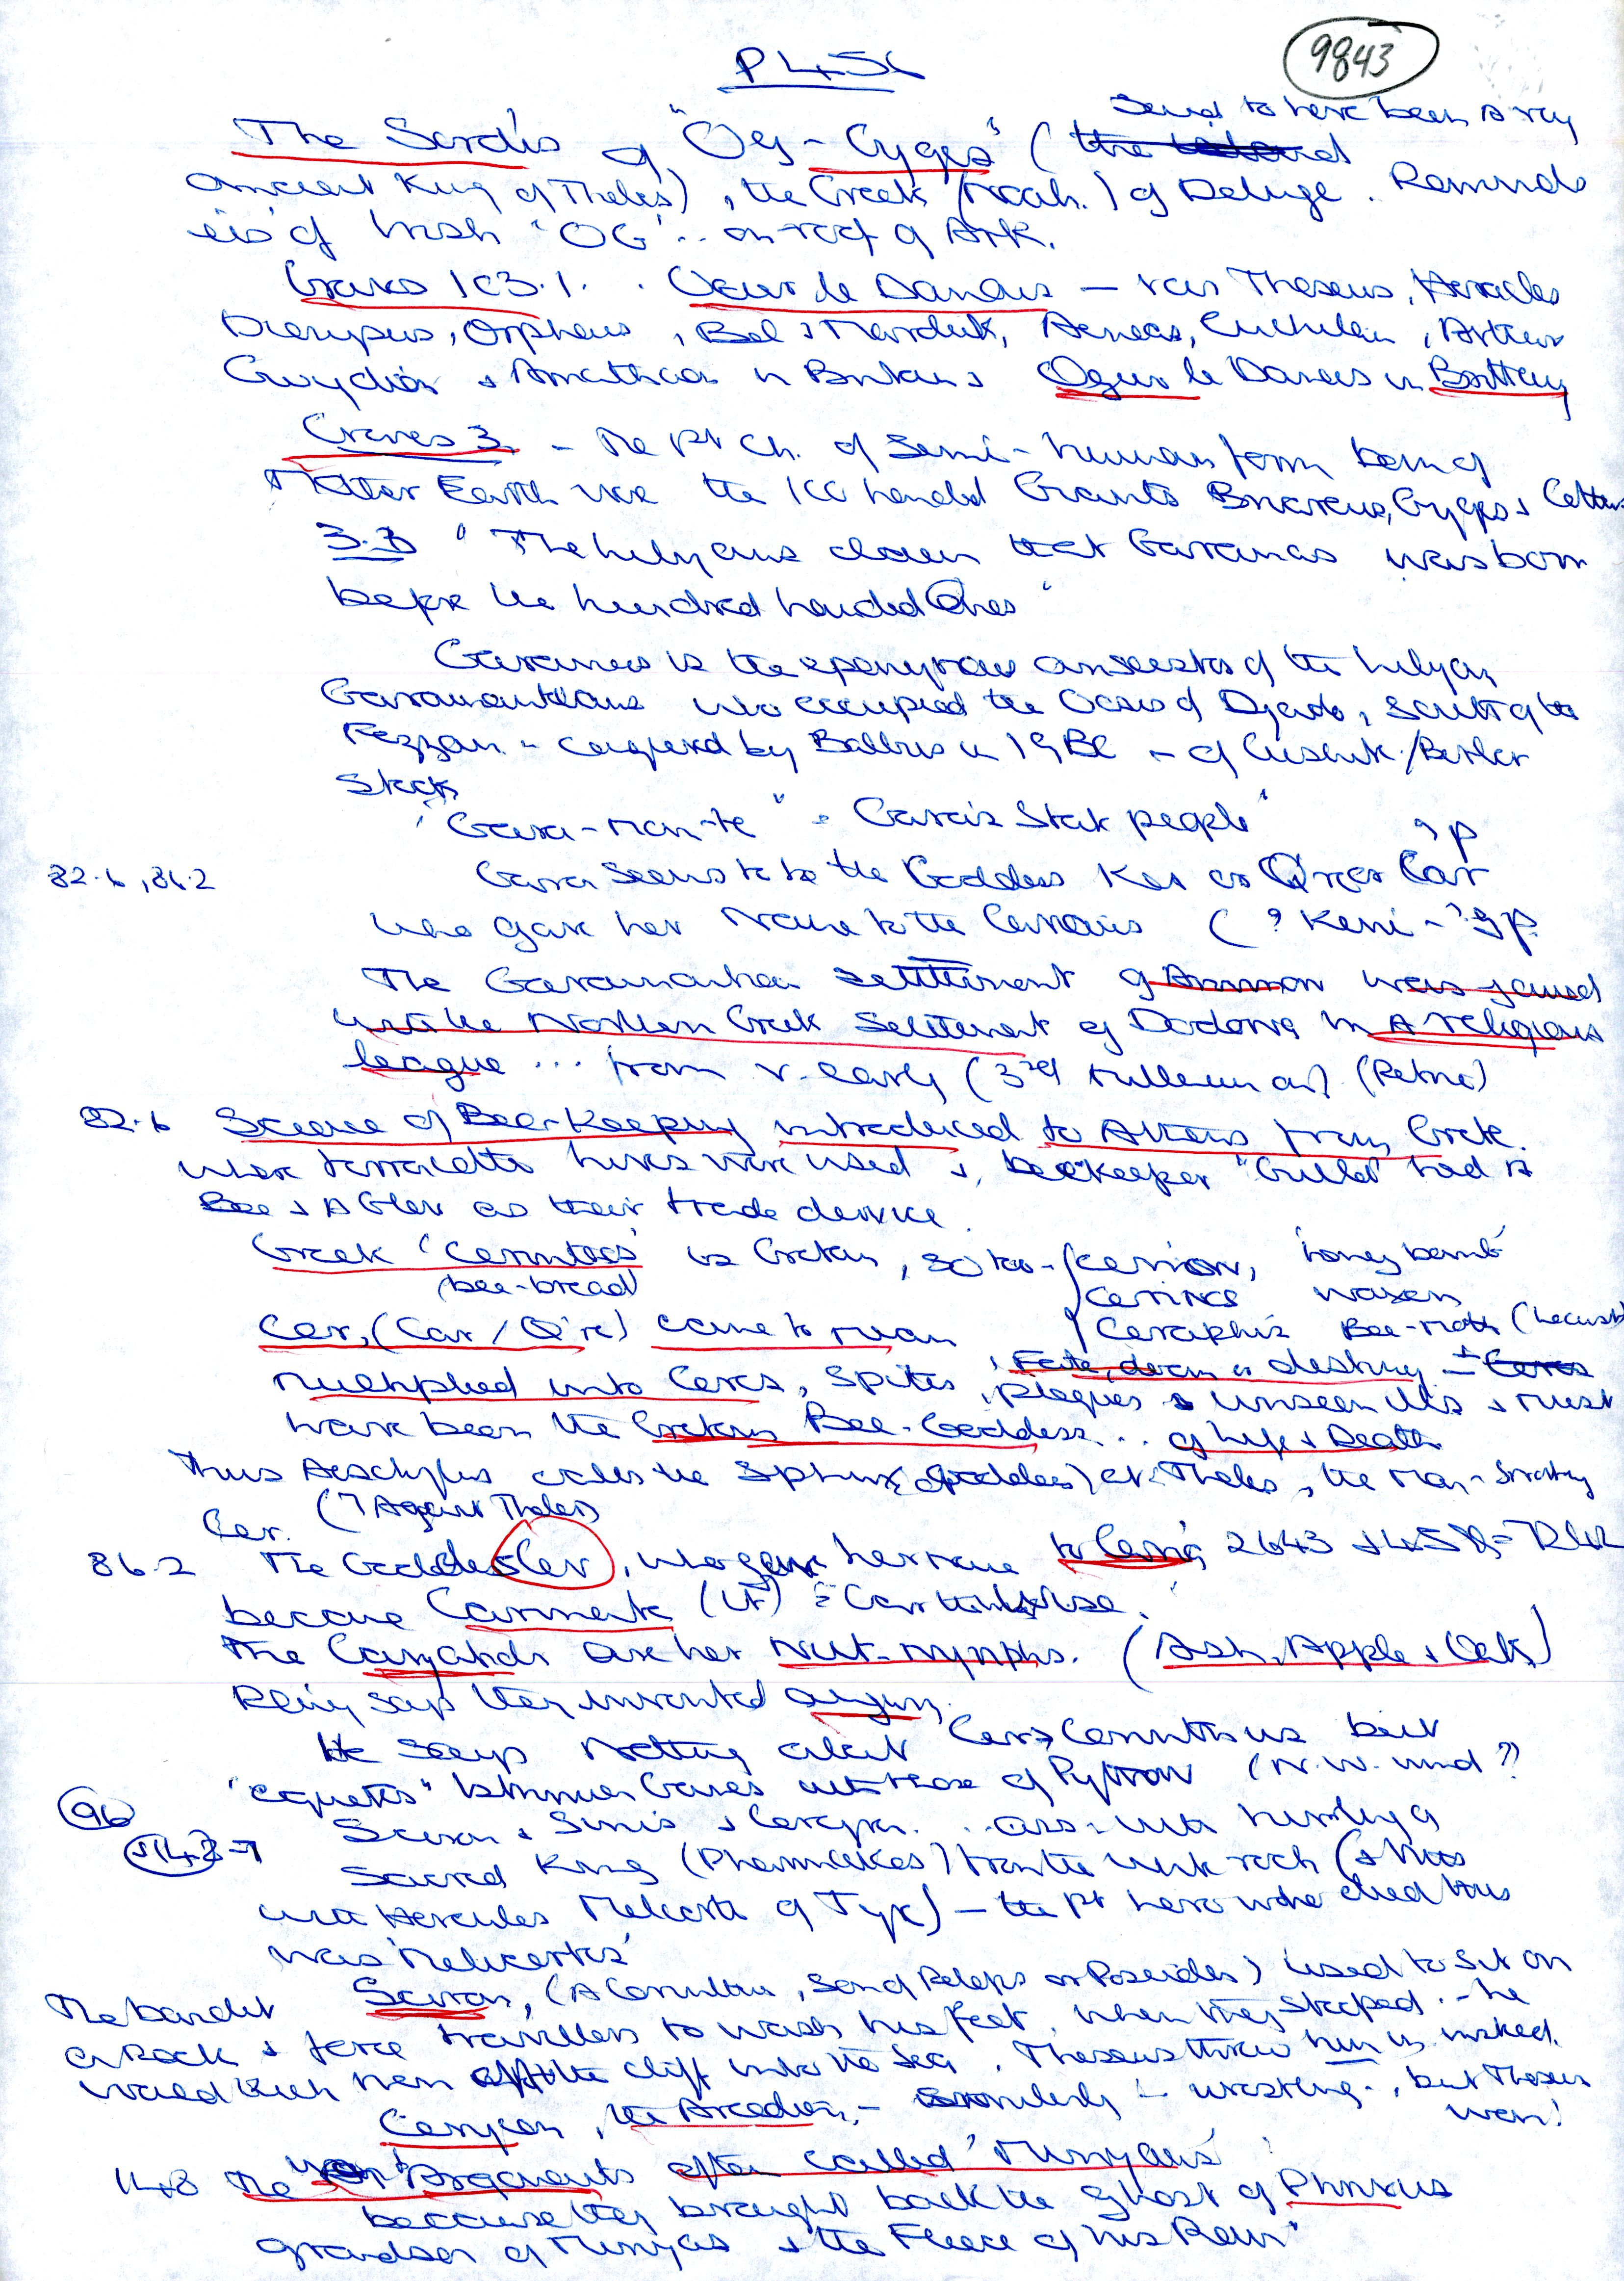 9843
P 456
The Serdis of "Og-Gyges" ( said to have been a very
ancient King of Thebes), the Greek (Noah.) of Deluge. Reminds
us of Irish "OG".. on roof of Ark.
Graves 103.1. . de Danaus — Theseus, Heracles
Orpheus, Bel & Marduk, Aeneas, Cuchulain, Arthur
Gwydion & Amathaon in Britain & Ogier le Danois in Brittany
Graves 3. - The 1st Ch. of Semi-human form being of
Mother Earth were the 100 handed Giants Briareus, Gyges &
3.3 "The Libyans claim that Garamas was born
before the hundred handed Ones"
Garamas is the eponymous ancestor of the Libyan
Garamantians who occupied the Oasis of Djado, South of the
Fezzan - conquered by Balbus in 19 BC - of Cushite/Berber
Stock
"Gara-man-te" = Gara's State people"
82.6, 86.2 Gara seems to be the Goddess Ker or Q're or Car
who gave her name to the Carians ( ? Keri -
The Garamantian settlement of Ammon was joined
with the Northern Greek Settlement of Dodona in A religious
league ... from v. early (3rd millenium on) (Petrie)
82.6 Science of Bee-Keeping introduced to Athens from Crete.
where terracotta hives were used & beekeeper "Guild" had a
Bee & A Glev as their trade device.
Greek 'Cerinthos' is Cretan, so too - Cerion, honey comb
(bee-bread) Cerinos waxen
Ceraphis Bee-moth (Locust)
Cer, (Car / Q're) came to mean Fate, doom or destiny -
multiplied into Ceres, Spites, plagues & unseen ills & must
have been the Cretan Bee-Goddess.. of Life & Death
Thus Aeschylus calls the Sphinx (goddess) at Thebes, the Man-Snatching
Cer. (7 Against Thebes)
86.2 The Goddess Car, who gave her name to Caria 2643
became Carmenta (Lt) = Car the Wise.
The Caryatids are her Nut-nymphs. (Ash, Apple & Oak)
Pliny says they invented augury.
He says nothing about Cer > Corinthus but
96 "equates" Isthmian Games with those of Python (N.W. wind ?)
148-7 Sciron & Sinis & Cercyon. .. ass. with hurling of
Sacred King (Pharmakos) from the white rock (& this
with Hercules Melkarth of Tyre) - the 1st hero who died thus
was 'Melicertes'
The bandit Sciron, (A Corinthian, Son of Pelops or Poseidon) used to sit on
a Rock & force travellers to wash his feet, when they stooped - he
would kick them off the cliff into the Sea. Theseus threw him in instead.
Cercyon, the Arcadian, - wrestling, but Theseus
won!
148 The Argonauts often called 'Minyans'
because they brought back the ghost of Phrixus
grandson of Minyas & the Fleece of his Ram"